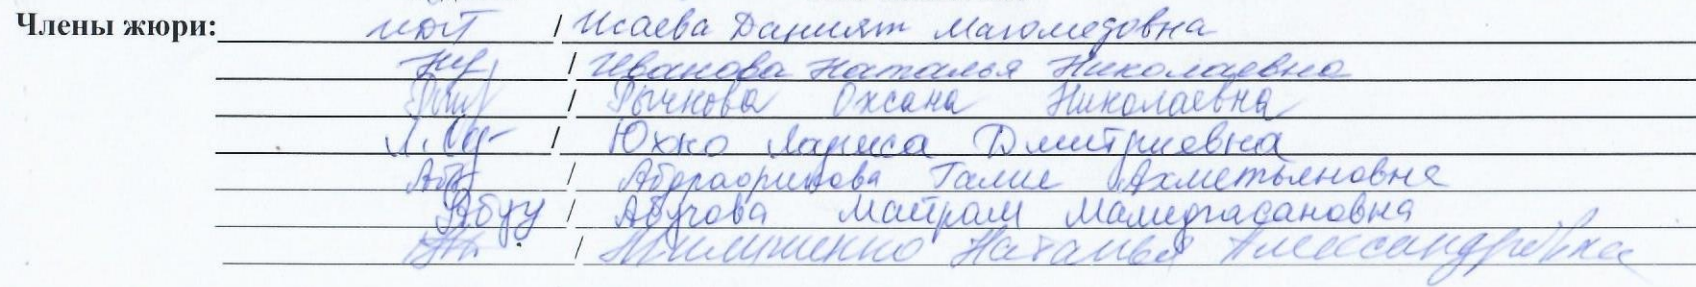 Члены жюри: / Исаева Даният Магомедовна
/ Иванова Наталья Николаевна
/ Рычкова Оксана Николаевна
/ Юхно Лариса Дмитриевна
/ Галие Ахметьяновна
/ Абучова Майрам Мамедгасановна
/ Наталья Александровна